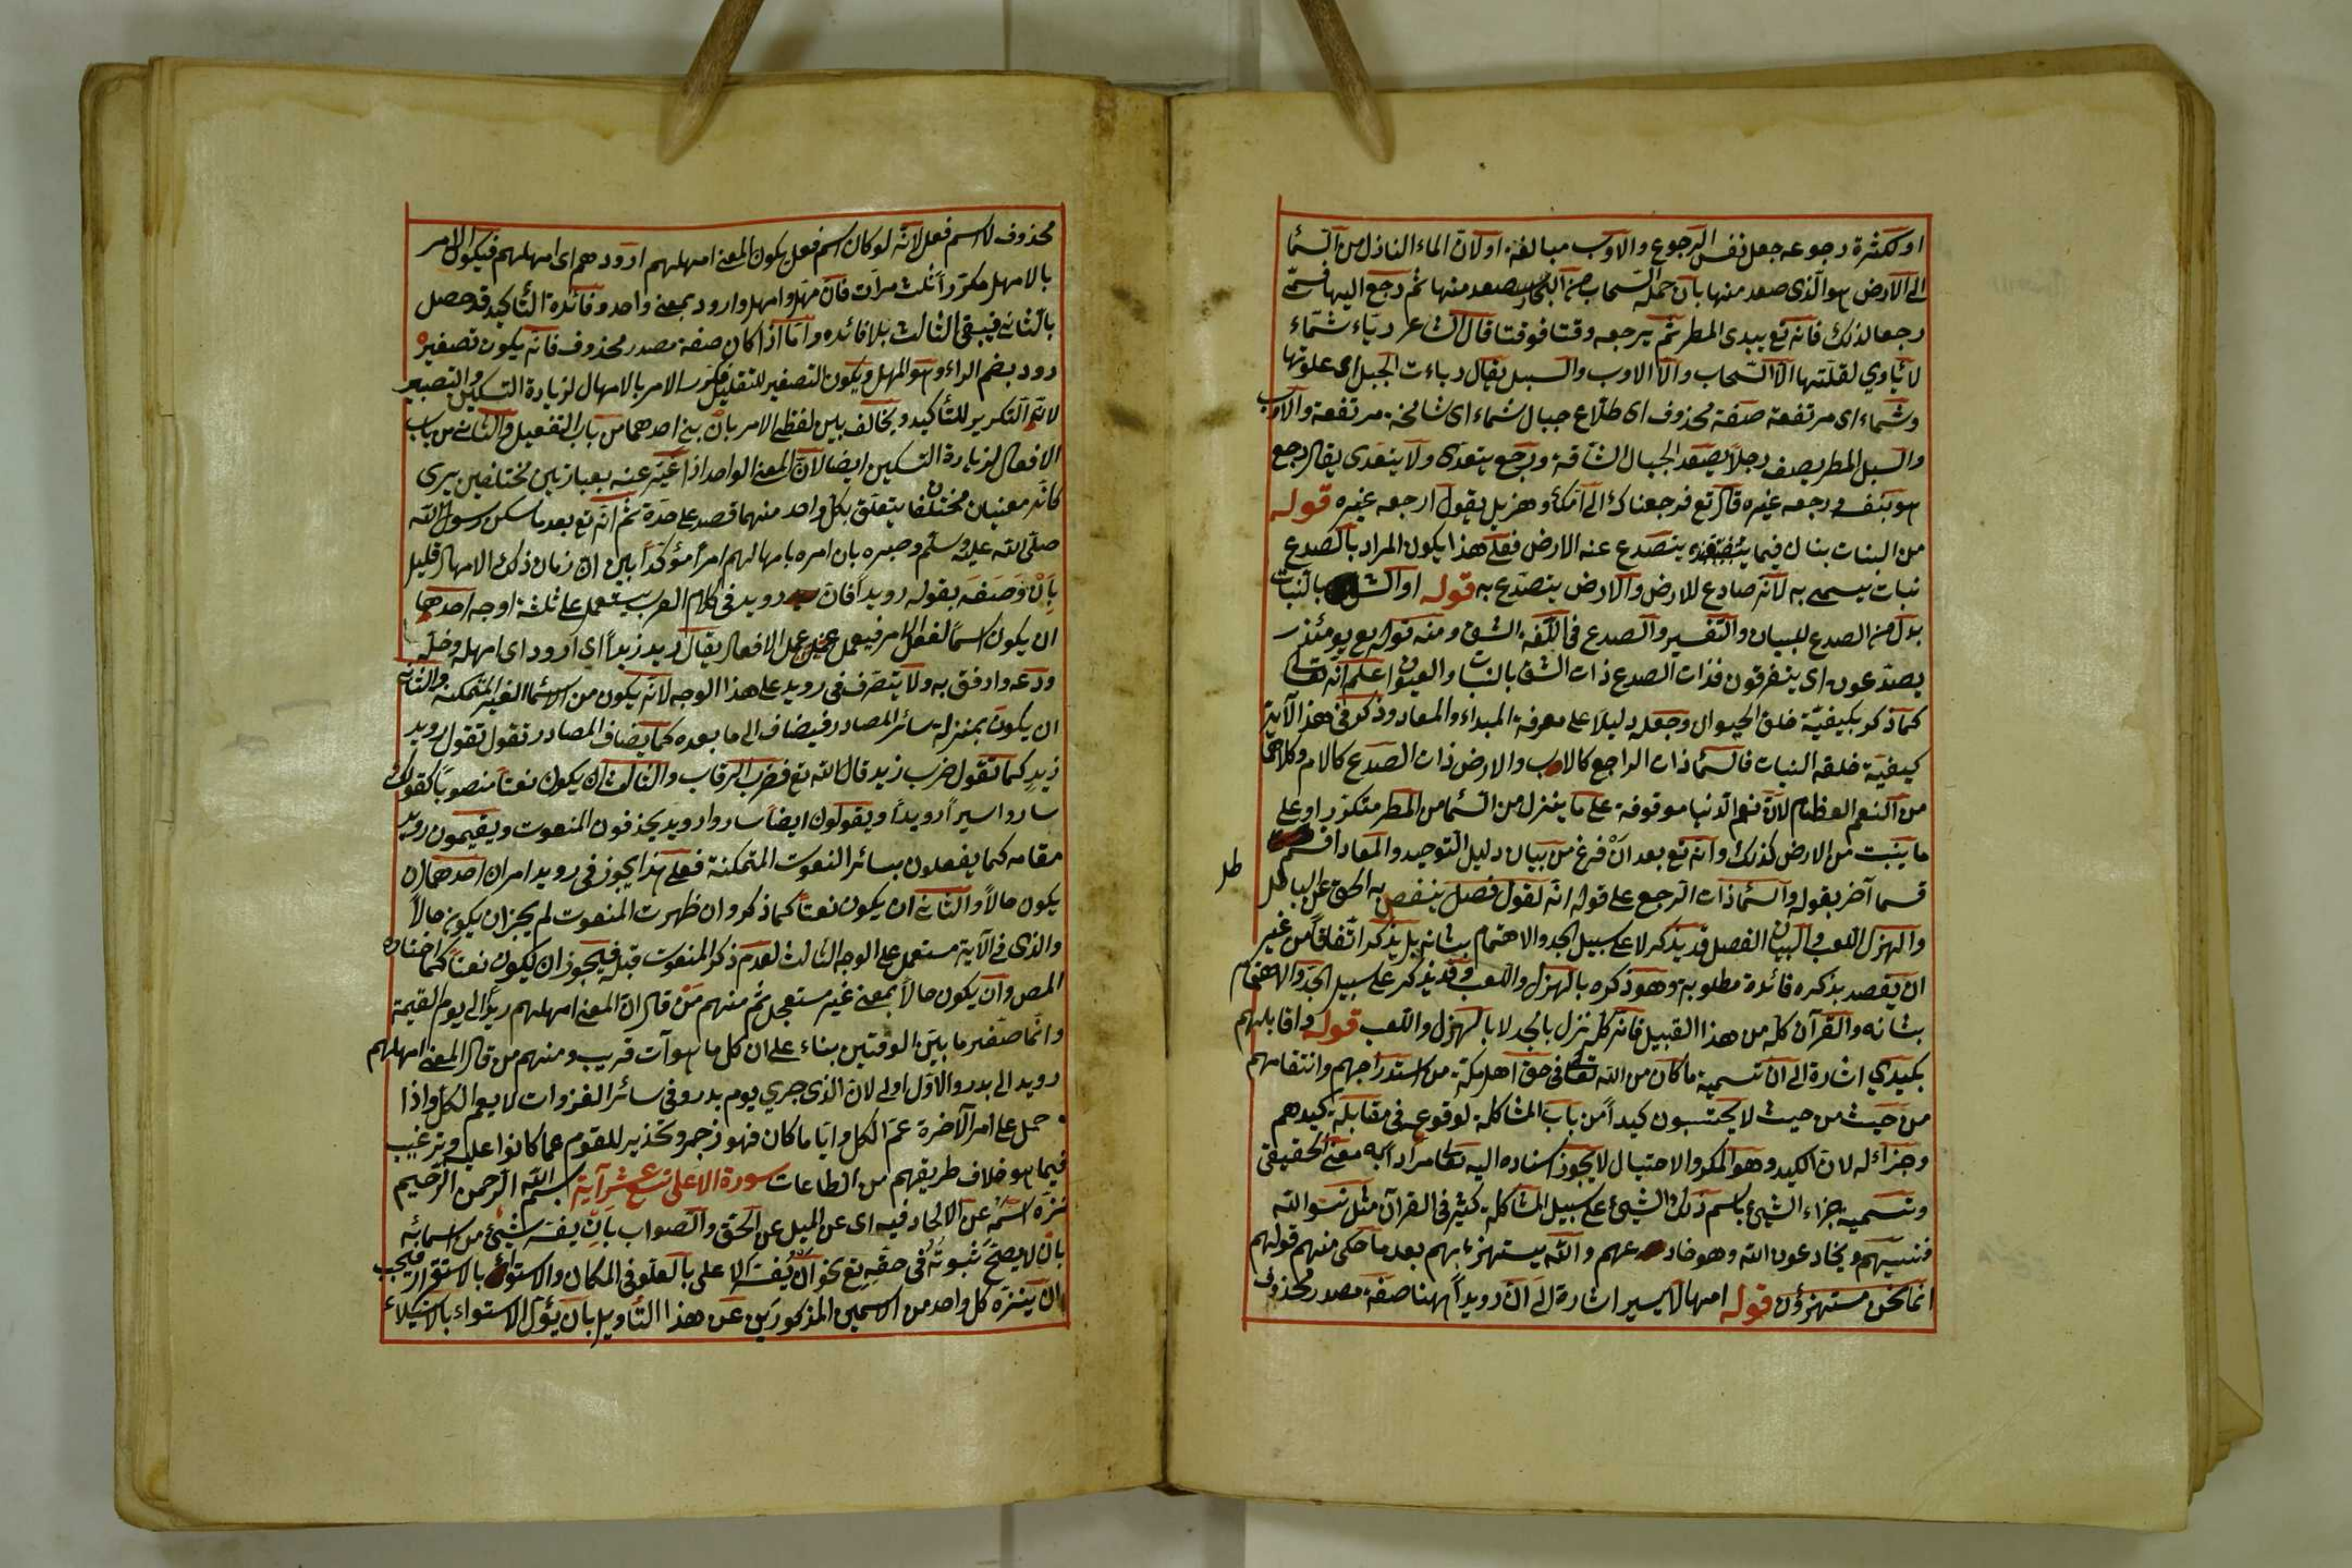 او لكثرة رجوعه جعل نفس الرجوع والاوب مبالغة او لان الماء النازل من السما
الى الارض هو الذى صعد منها بان حمله السحاب من البحار صعد منها ثم رجع اليها فسمى
رجعا لذلك فانه تع يبدى المطر ثم يرجعه وقتا فوقتا قال الشاعر رباء شماء
لا يأوي لقلتها الا السحاب والا الاوب والسبل يقال رباءت الجبل اى علوتها
وشماء اى مرتفعة صفة محذوف اى طلاع جبال شماء اى شامخة مرتفعة والاوب
والسبل المطر يصف رجلا يصعد الجبال الشاقة ورجع يتعدى ولا يتعدى يقال رجع
هو بنفسه ورجعه غيره قال تع فرجعناك الى امك وهزيل يقول ارجعه غيره قوله
من النبات بنا ك فيما ينصدع عنه الارض فعلى هذا يكون المراد بالصدع
نبات يسمى به لانه صادع للارض والارض يتصدع به قوله او الشق بالنبات
بدل من الصدع للبيان والتفسير والصدع فى اللغة الشق ومنه قوله تع يومئذ
يصدعون اى يتفرقون فذات الصدع ذات الشق بالنبات والعيون اعلم انه تعالى
كما ذكر بكيفية خلق الحيوان وجعله دليلا على معرفة المبداء والمعاد وذكر فى هذه الآية
كيفية خلقه النبات فالسما ذات الراجع كالاب والارض ذات الصدع كالام وكلاهما
من النعم العظام لان نعم الدنيا موقوفة على ما ينزل من السما من المطر متكررا وعلى
ما ينبت من الارض كذلك وانه تع بعد ان فرغ من بيان دليل التوحيد والمعاد اقسم
قسما آخر بقوله والسما ذات الرجع على قوله انه لقول فصل ينفص به الحق عن الباطل
طل
والهزل اللعب فى البيان الفصل قد يذكر لا على سبيل الجد والاهتمام بشانه بل يذكر اتفاقا من غير
ان يقصد بذكره فائدة مطلوبة وهو ذكره بالهزل واللعب وقد يذكر على سبيل الجد والاهتمام
بشانه والقرآن كله من هذا القبيل فانه كله نزل بالجد لا بالهزل واللعب قوله واقابلهم
بكيدي اشارة الى ان تسمية ما كان من الله تعالى فى حق اهل مكة من استدراجهم وانتقامهم
من حيث من حيث لا يحتسبون كيدا من باب المشاكلة لوقوعه فى مقابلة كيدهم
وجزاء له لان الكيد وهو المكر والاحتيال لا يجوز اسناده اليه تعالى مرادا به معنى الحقيقى
وتسمية جزاء الشيئ باسم ذلك الشيئ على سبيل المشاكلة كثير فى القرآن مثل نسوا الله
فنسيهم ويخادعون الله وهو خادعهم والله يستهزء بهم بعد ما حكى منهم قولهم
انما نحن مستهزؤن قوله امهالا يسيرا اشارة الى ان رويدا ههنا صفة مصدر محذوف
محذوف لا اسم فعل لانه لو كان اسم فعل يكون المعنى امهلهم ارودهم اى امهلهم فيكون الامر
بالامهل مكررا ثلث مرات فان مهل وامهل وارود بمعنى واحد وفائدة التاكيد قد حصل
بالثانى فيبقى الثالث بلا فائده واما اذا كان صفة مصدر محذوف فانه يكون تصغير
رود بضم الراء وهو المهل ويكون التصغير للتقليل فكرر الامر بالامهال لزيادة التسكين والتصبير
لانه التكرير للتأكيد ويخالف بين لفظى الامر بان بنى احدهما من باب التفعيل والثانى من باب
الافعال لزيادة التسكين ايضا لان المعنى الواحد اذا عبر عنه بعبارتين مختلفين يرى
كانه معنيان مختلفان يتعلق بكل واحد منهما قصد على حدة ثم انه تع بعد ما سكن رسول الله
صلى الله عليه وسلم وصبره بان امره بامهالهم امرا مؤكدا بين ان زمان ذلك الامهال قليل
بان وصفه بقوله رويدا فان رويد فى كلام العرب يستعمل على ثلثة اوجه احدها
ان يكون اسما لفعل الامر فيعمل عمل الافعال يقال رويد زيدا اي ارود اى امهله وخله
ودعه وارفق به ولا يتصرف فى رويد على هذا الوجه لانه يكون من الاسما الغير المتمكنه والثانى
ان يكون بمنزلة سائر المصادر فيضاف الى ما بعده كما يضاف المصادر تقول تقول رويد
زيد كما تقول ضرب زيد قال الله تع فضرب الرقاب والثالث ان يكون نعتا منصوبا كقولك
ساروا سيرا رويدا ويقولون ايضا ساروا رويد يحذفون المنعوت ويقيمون رويد
مقامه كما يفعلون بسائر النعوت المتمكنة فعلى هذا يجوز فى رويد امران احدهما ان
يكون حالا والثانى ان يكون نعتا كما ذكر وان ظهرت المنعوت لم يجز ان يكون حالا
والذى فى الآية مستعمل على الوجه الثالث لعدم ذكر المنعوت قبله فيجوز ان يكون نعتا كما اختاره
المص وان يكون حالا بمعنى غير مستعجل ثم منهم من قال ان المعنى امهلهم ريدا الى يوم القيمة
وانما صغير ما بين الوقتين بناء على ان كل ما هو آت قريب ومنهم من قال المعنى امهلهم
رويد الى بدر والاول اولى لان الذى جري يوم بدر وفى سائر الغزوات لا يعم الكل واذا
حمل على امر الآخرة عم الكل وايا ما كان فهو زجر وتحذير للقوم عما كانوا عليه وترغيب
فيما هو خلاف طريقهم من الطاعات سورة الاعلى تسع عشر آية بسم الله الرحمن الرحيم
نزه اسمه عن الالحاد فيه اى عن الميل عن الحق والصواب بان يفسر شيئ من اسمائه
بان لا يصح ثبوته فى حقه تع نحو ان يفسر الاعلى بالعلو فى المكان والاستواء بالاستقرار فيجب
ان ينزه كل واحد من الاسمين المذكورين عن هذا التأويل بان يؤل الاستواء بالاستيلاء